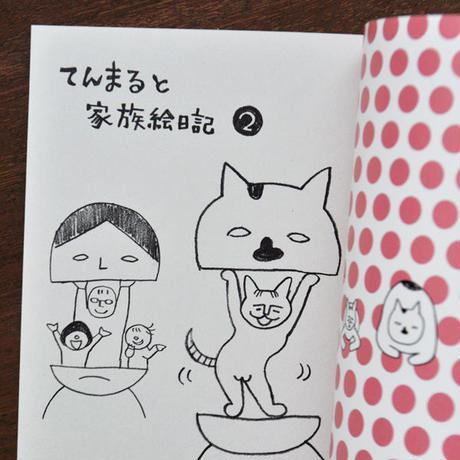 てんまると
家族絵日記 2